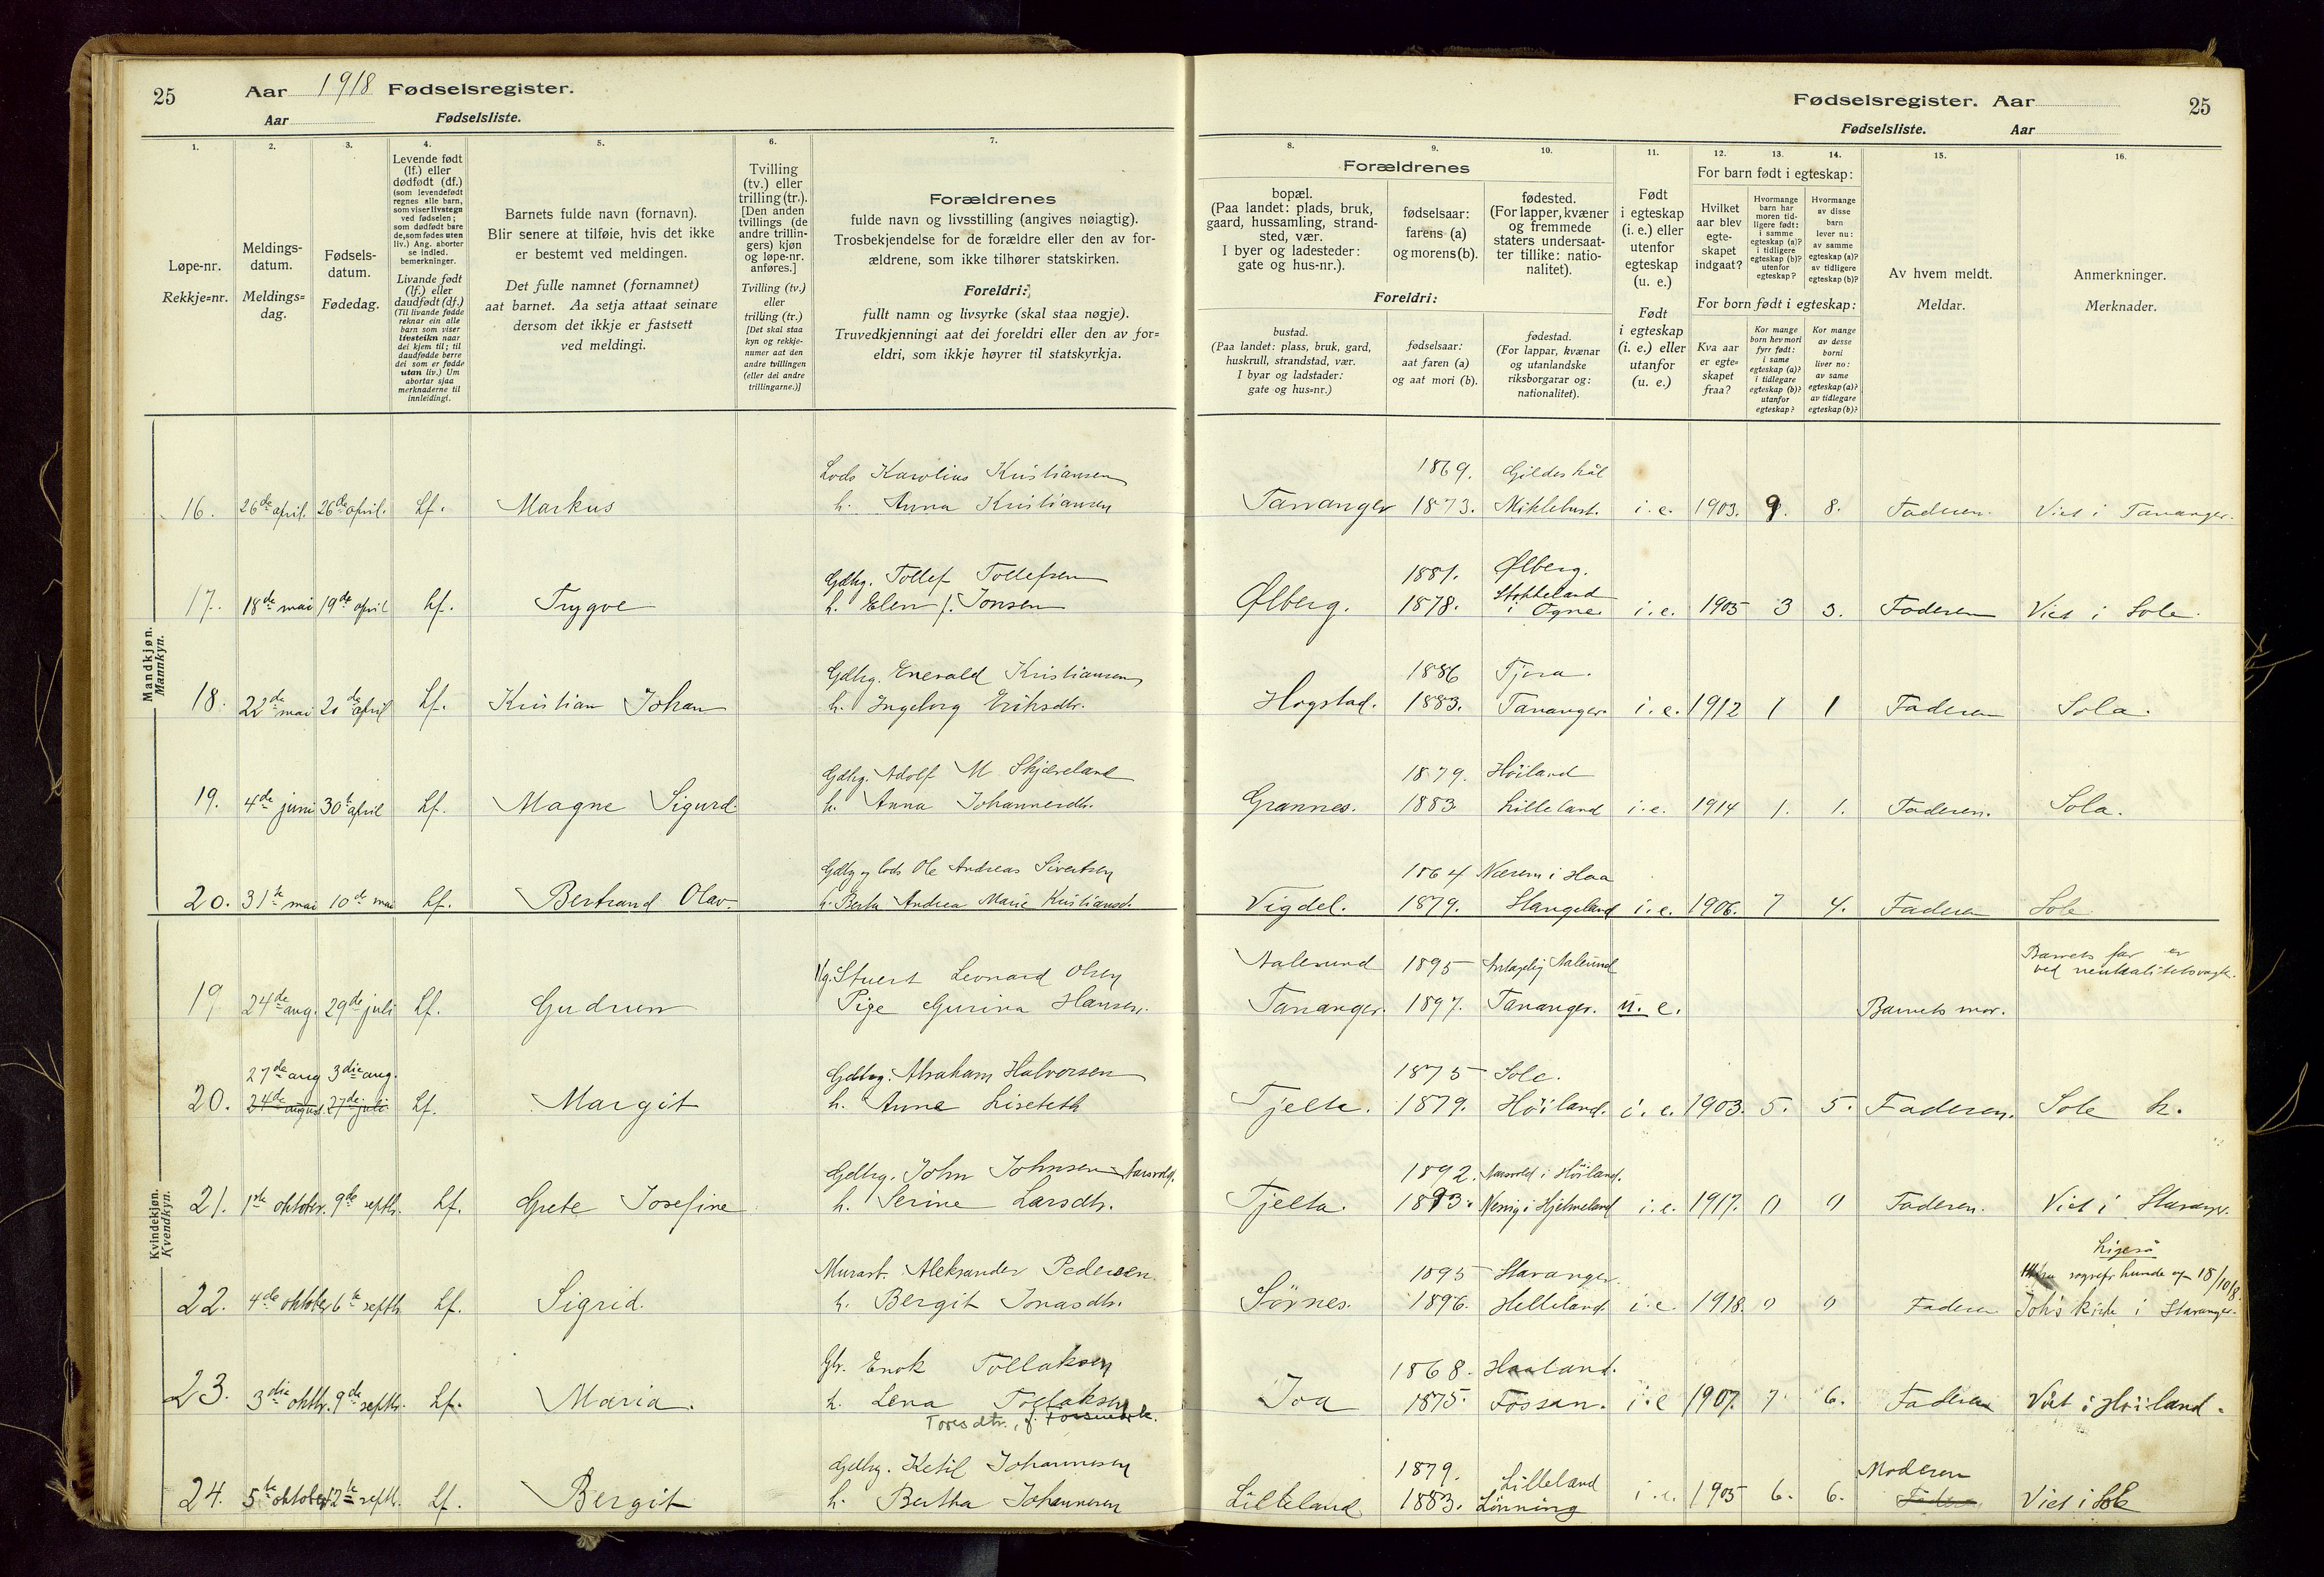 25
Aar 1918 Fødselsregister.
Aar
Fødselsliste.
Fødselsregister. Aar
25
Fødselsliste. Aar
1. 2. 3. 4. 5. 6. 7.
Løpe-nr.
Rekkje=nr.
Meldings-
datum.
Meldings=
dag.
Fødsels-
datum.
Fødedag.
Levende født
(lf.) eller
dødfødt (df.)
(som levendefødt
regnes alle barn,
som viser livstegn
ved fødselen;
som dødfødt bare
de, som fødes uten
liv.) Ang. aborter
se indled.
bemerkninger.
Livande født
(lf.) eller
daudfødt (df.)
(Til livande fødde
reknar ein alle
barn som viser
livsteikn naar
dei kjem til; til
daudfødde berre
dei som er fødde
utan liv.) Um
abortar sjaa
merknaderne til
innleidingi.
Barnets fulde navn (fornavn).
Blir senere at tilføie, hvis det ikke
er bestemt ved meldingen.
Det fulle namnet (fornamnet)
aat barnet. Aa setja attaat seinare
dersom det ikkje er fastsett
ved meldingi.
Tvilling
(tv.) eller
trilling (tr.).
[Den anden
tvillings (de
andre trillin-
gers) kjøn
og løpe-nr.
anføres.]
Tvilling (tv.)
eller
trilling (tr.)
[Det skal staa
kyn og rekkje-
numer aat den
andre tvillingen
(eller dei andre
trillingarne.)]
Forældrenes
fulde navn og livsstilling (angives nøiagtig).
Trosbekjendelse for de forældre eller den av for-
ældrene, som ikke tilhører statskirken.
Foreldri:
fullt namn og livsyrke (skal staa nøgje).
Truvedkjenningi aat dei foreldri eller den av for=
eldri, som ikkje høyrer til statskyrkja.
8. 9. 10. 11. 12. 13. 14. 15. 16.
Forældrenes
bopæl.
(Paa landet: plads, bruk,
gaard, hussamling, strand-
sted, vær.
I byer og ladesteder:
gate og hus-nr.).
Foreldri:
bustad.
(Paa landet: plass, bruk, gard,
huskrull, strandstad, vær.
I byar og ladstader:
gate og hus=nr.)
fødselsaar:
farens (a)
og morens (b).
fødselsaar:
aat faren (a)
og aat mori (b).
fødested.
(For lapper, kvæner
og fremmede
staters undersaat-
ter tillike: natio-
nalitet).
fødestad.
(For lappar, kvænar
og utanlandske
riksborgarar og:
nationalitet).
Født
i egteskap
(i. e.) eller
utenfor
egteskap
(u. e.)
Født
i egteskap
(i. e.) eller
utanfor
(u. e.)
For barn født i egteskap:
Hvilket
aar blev
egte-
skapet
indgaat?
Hvormange
barn har
moren tid-
ligere født:
i samme
egteskap (a)?
i tidligere
egteskap (b)?
utenfor
egteskap?
Hvormange
av disse
barn
lever nu:
av samme
egteskap (a)?
av tidligere
egteskap (b)?
For born født i egteskap:
Kva aar
er egte=
skapet
fraa?
Kor mange
born hev mori
fyrr født:
i same
egteskap (a)?
i tidlegare
egteskap (b)?
utanfor
egteskap?
Kor mange
av desse
borni
liver no:
av same
egteskap (a)?
av tidlegare
egteskap (b)?
Av hvem meldt.
Meldar.
Anmerkninger.
Merknader.
Mandkjøn.
Mannkyn.
Lods Karolius Kristiansen 1869. Gildeskål
16. 26de april. 26de april. Lf. Markus h. Anna Kristiansen Tananger 1873. Miklebust. i. e. 1903. 9. 8. Faderen. Viet i Tananger.
Gdbrg. Tollef Tollefsen 1881. Ølberg.
17. 18de mai 19de april Lf. Trygve h. Elen f. Jonsen Ølberg. 1878. Stokkeland i Ogne. i. e. 1905 3 3. Faderen Viet i Sole.
Gdbrg. Enevald Kristiansen 1886 Tjora.
18. 22de mai 20de april Lf. Kristian Johan h. Ingeborg Eriksdtr. Hogstad. 1883. Tananger. i. e. 1912 1 1 Faderen Sola.
Gdbrg. Adolf M Skjæveland 1879. Höiland
19. 4de juni 30te april Lf. Magne Sigurd h. Anna Johannesdtr. Grannes. 1883 Lilleland i. e. 1914 1. 1. Faderen. Sola.
Gdbrg og lods Ole Andreas Sivertsen 1864 Næsem i Haa
20. 31te mai 10de mai Lf. Bertrand Olav. h. Berta Andrea Marie Kristiansd. Vigdel. 1879. Stangeland i. e. 1906. 7 4. Faderen Sole
Kvindekjøn.
Kvendkyn.
Ug. Stuert Leonard Olsen Aalesund 1895 Antagelig Aalesund Barnets far er
ved neutralitetsvagten.
19 24de aug. 29de juli Lf. Gudrun Pige Gurina Hansen. Tananger. 1897. Tananger. u. e. Barnets mor.
27de aug 3die aug. Gdbrg. Abraham Halvorsen 1875 Sole.
20. 24de august. 27de juli Lf. Margit h. Anne Liseteth Tjelte. 1879. Höiland. i. e. 1903. 5. 5. Faderen. Sole k.
Gdbrg. John Johnsen Aarsvold. 1892. Aarsvold i Höiland.
21. 1ste oktober. 9de septbr. Lf. Grete Josefine h. Serine Larsdtr. Tjelta. 1893. i Hjelmeland i. e. 1917. 0 0 Faderen. Viet i Stavanger.
Murarb. Aleksander Pedersen. 1895 Stavanger.
Ligeså
18/10/18.
22. 4de oktober 6te septbr. Lf. Sigrid. h. Bergit Jonasdtr. Sörnes. 1896. Helleland. i. e. 1918. 0 0 Faderen Joh's kirke i Stavanger.
Gbr. Enok Tollaksen 1868. Haaland.
23. 3die oktbr. 9de septbr. Lf. Maria. h. Lena Tollaksen Joa 1875. Fossan. i. e 1907. 7 6. Faderen Viet i Höiland.
Toresdtr., f.
Gdbrg. Ketil Johannesen 1879. Lilleland Moderen
24. 5te oktober 12te septbr. Lf. Bergit h. Bertha Johannesen Lilleland 1883. Lönning i. e. 1905 6. 6. Faderen Viet i Sole